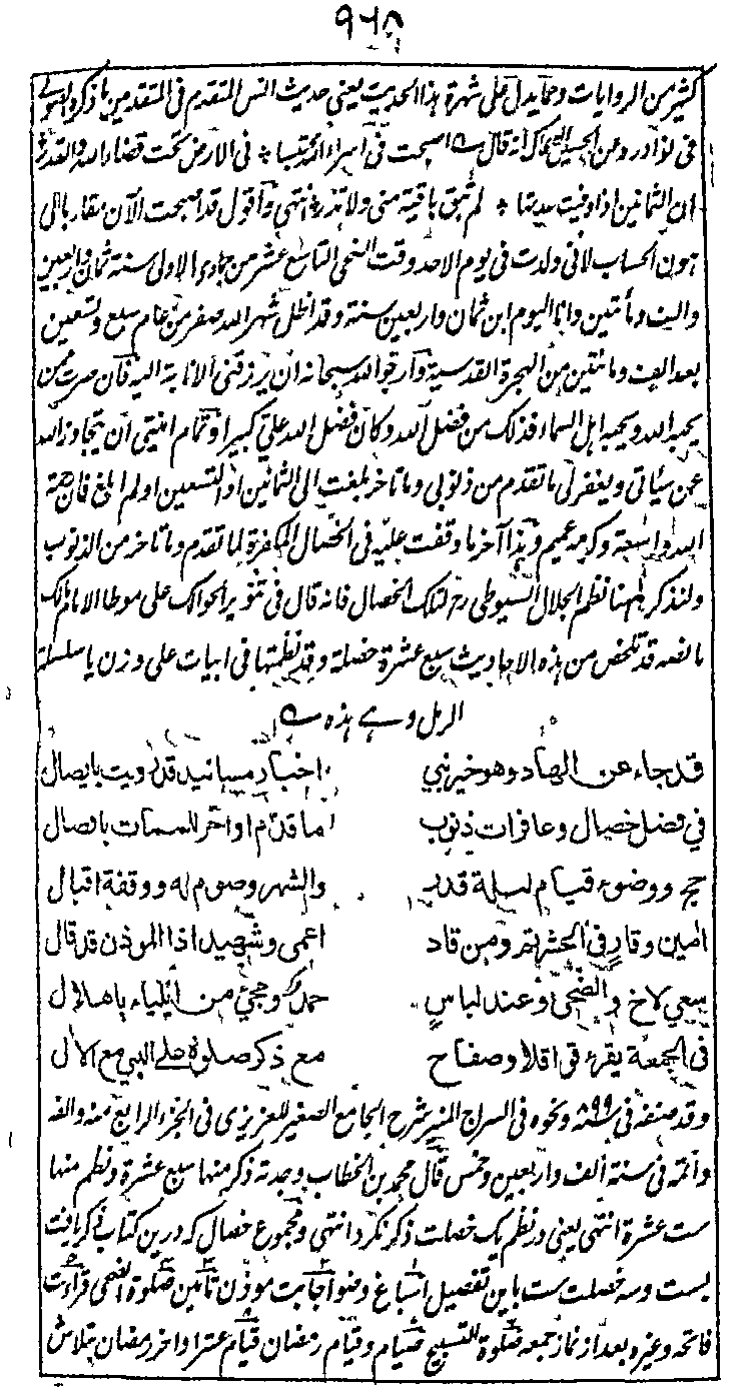 ٩٦٥
كثير من الروايات ومما يدل على شهرة هذا الحديث يعني حديث انس المتقدم في المتقدمين ما ذكره
في نوادره وعن الحسين الضحاك انه قال ے اصبحت في اسراء الله محتبسا ٭ في الارض تحت قضاء الله والقدر
ان الثمانين اذا وفيت عدتها ٭ لم تبق باقية مني ولا تذر انتهى واقول قد اصبحت الآن مقاربا الى
هون الحساب لاني ولدت في يوم الاحد وقت الضحى التاسع عشر من جمادى الاولى سنة ثمان واربعين
والف ومأتين وانا اليوم ابن ثمان واربعين سنة وقد اظل شهر الله صفر من عام سبع وتسعين
بعد الف ومائتين من الهجرة القدسية وارجو الله سبحانه ان يرزقني الانابة اليه فان صرت ممن
يحبه الله ويحبه اهل السماء فذلك من فضل الله وكان فضل الله علي كبيرا وتمام امنيتي ان يتجاوز الله
عن سيأتي ويغفر لي ما تقدم من ذنوبي وما تاخر بلغت الى الثمانين او التسعين او لم ابلغ فان رحمة
الله واسعة وكرمه عميم وهذا آخر ما وقفت عليه في الخصال المكفرة لما تقدم وما تاخر من الذنوب
ولنذكر ههنا نظم الجلال السيوطي رح لتلك الخصال فانه قال في تنوير الحوالك على موطا الامام مالك
ما نصه قد تلخص من هذه الاحاديث سبع عشرة خصلة وقد نظمتها في ابيات على وزن يا سلسلة
الرمل وهي هذه ے
قد جاء عن الهاد وهو خير نبي اخبار مسانيد قد رويت بايصال
في فضل خصال وغافرات ذنوب ما قدم او اخر للممات بافضال
حج ووضوء قيام ليلة قدر والشهر وصوم له ووقفة اقبال
امين وقار في الحشر ثم ومن قاد اعمى وشهيد اذا الموذن قد قال
سعي لاخ والضحى وعند لباس حمد ومجئ من ايلياء باهلال
في الجمعة يقرء قواقلا وصفاح مع ذكر صلوة على النبي مع الآل
وقد صنفه في سنة ٨٩٩ ونحوه في السراج المنير شرح الجامع الصغير للعزيزي في الجزء الرابع منه والفه
واتمه في سنة الف واربعين وخمس قال محمد بن الخطاب وجدته ذكر منها سبع عشرة ونظم منها
ست عشرة انتهى يعني در نظم يك خصلت ذكر نكرد انتهى ومجموع خصال كه درين كتاب ذكر يافت
بست وسه خصلت ست باين تفصيل اسباغ وضو اجابت موذن تأمين صلوة الضحى قراءت
فاتحه وغيره بعد از نماز جمعه صلوة التسبيح صيام وقيام رمضان قيام عشر اواخر رمضان بتلاش